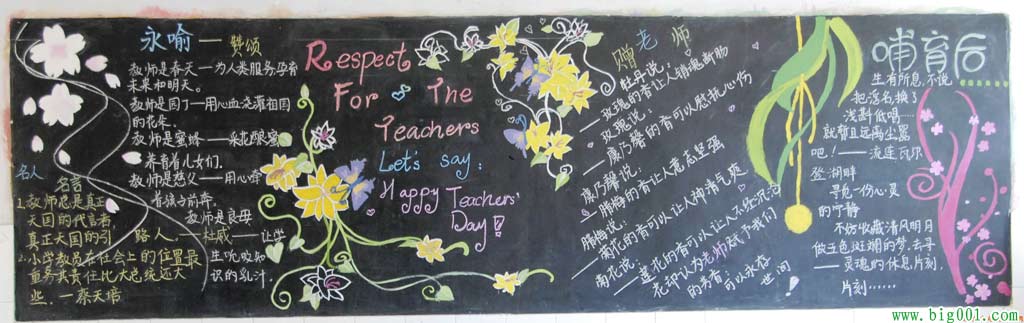 永喻——赞颂
教师是春天——为人类服务,孕育
未来和明天。
教师是园丁——用心血浇灌祖国
的花朵。
教师是蜜蜂——采花酿蜜
养育着儿女们。
教师是慈父——用心牵
着孩子前奔。
教师是良母,
生吮吸知
识的乳汁。
路人。——杜威——让学
名人
名言
1.教师总是真正
天国的代言者,
真正天国的引
2.小学教员在社会上的位置最
重务其责任比大总统还大
些。——蔡元培
Respect
For The
Teachers
Let's say:
Happy Teachers'
Day!
赠老师
牡丹说:
——玫瑰的香让人销魂断肠
玫瑰说:
——康乃馨的香可以慰抚心伤
康乃馨说:
——腊梅的香让人意志坚强
腊梅说:
——菊花的香可以让人神清气爽
菊花说:
——莲花的香可以让人不经沉沦
花却认为老师赋予我们
的芳香可以永存
世间!
哺育后……
生有所息,不说
把落名换了
浅斟低唱……
就暂且远离尘嚣
吧!——流连瓦尔
登湖畔
寻色一份心灵
的宁静
不妨收藏清风明月
做五色斑斓的梦,去寻
——灵魂的休息片刻,
片刻……
www.big001.com